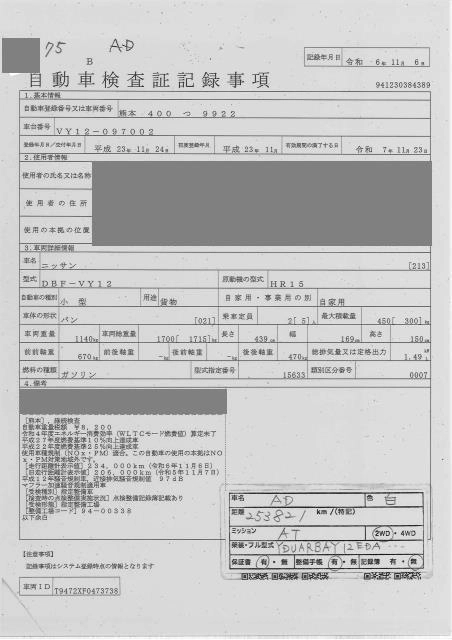 75 AD
B
記録年月日 令和 6年 11月 6日
自動車検査証記録事項
941230384389
1.基本情報
自動車登録番号又は車両番号 熊本 400 つ 9922
車台番号 VY12-097002
登録年月日/交付年月日 平成 23年 11月 24日 初度登録年月 平成 23年 11月 有効期間の満了する日 令和 7年 11月 23日
2.使用者情報
使用者の氏名又は名称
使用者の住所
使用の本拠の位置
3.車両詳細情報
車名 ニッサン [213]
型式 DBF-VY12 原動機の型式 HR15
自動車の種別 小型 用途 貨物 自家用・事業用の別 自家用
車体の形状 バン [021] 乗車定員 2[ 5]人 最大積載量 450[ 300]kg
車両重量 1140kg 車両総重量 1700[ 1715]kg 長さ 439cm 幅 169cm 高さ 150cm
前前軸重 670kg 前後軸重 -kg 後前軸重 -kg 後後軸重 470kg 総排気量又は定格出力 1.49 kW L
燃料の種類 ガソリン 型式指定番号 15633 類別区分番号 0007
4.備考
[熊本],継続検査
自動車重量税額 ¥8,200
令和4年度エネルギー消費効率(WLTCモード燃費値)算定未了
平成27年度燃費基準10%向上達成車
平成22年度燃費基準25%向上達成車
使用車種規制(NOx・PM)適合。この自動車の使用の本拠はNO
x・PM対策地域外です。
[走行距離計表示値]234,000km(令和6年11月6日)
[旧走行距離計表示値]206,000km(令和5年11月7日)
平成12年騒音規制車、近接排気騒音規制値 97dB
マフラー加速騒音規制適用車
[受検種別]指定整備車
[検査時の点検整備実施状況]点検整備記録簿記載あり
[受検形態]指定整備工場
[整備工場コード]94-00338
以下余白
車名 AD 色 白
距離 253821 km/(特記)
ミッション AT 2WD・4WD
架装・フル型式
保証書 有・無 整備手帳 有・無 記録簿 有・無
【注意事項】
記録事項はシステム登録時点の情報となります
車両ID T9472XF0473738